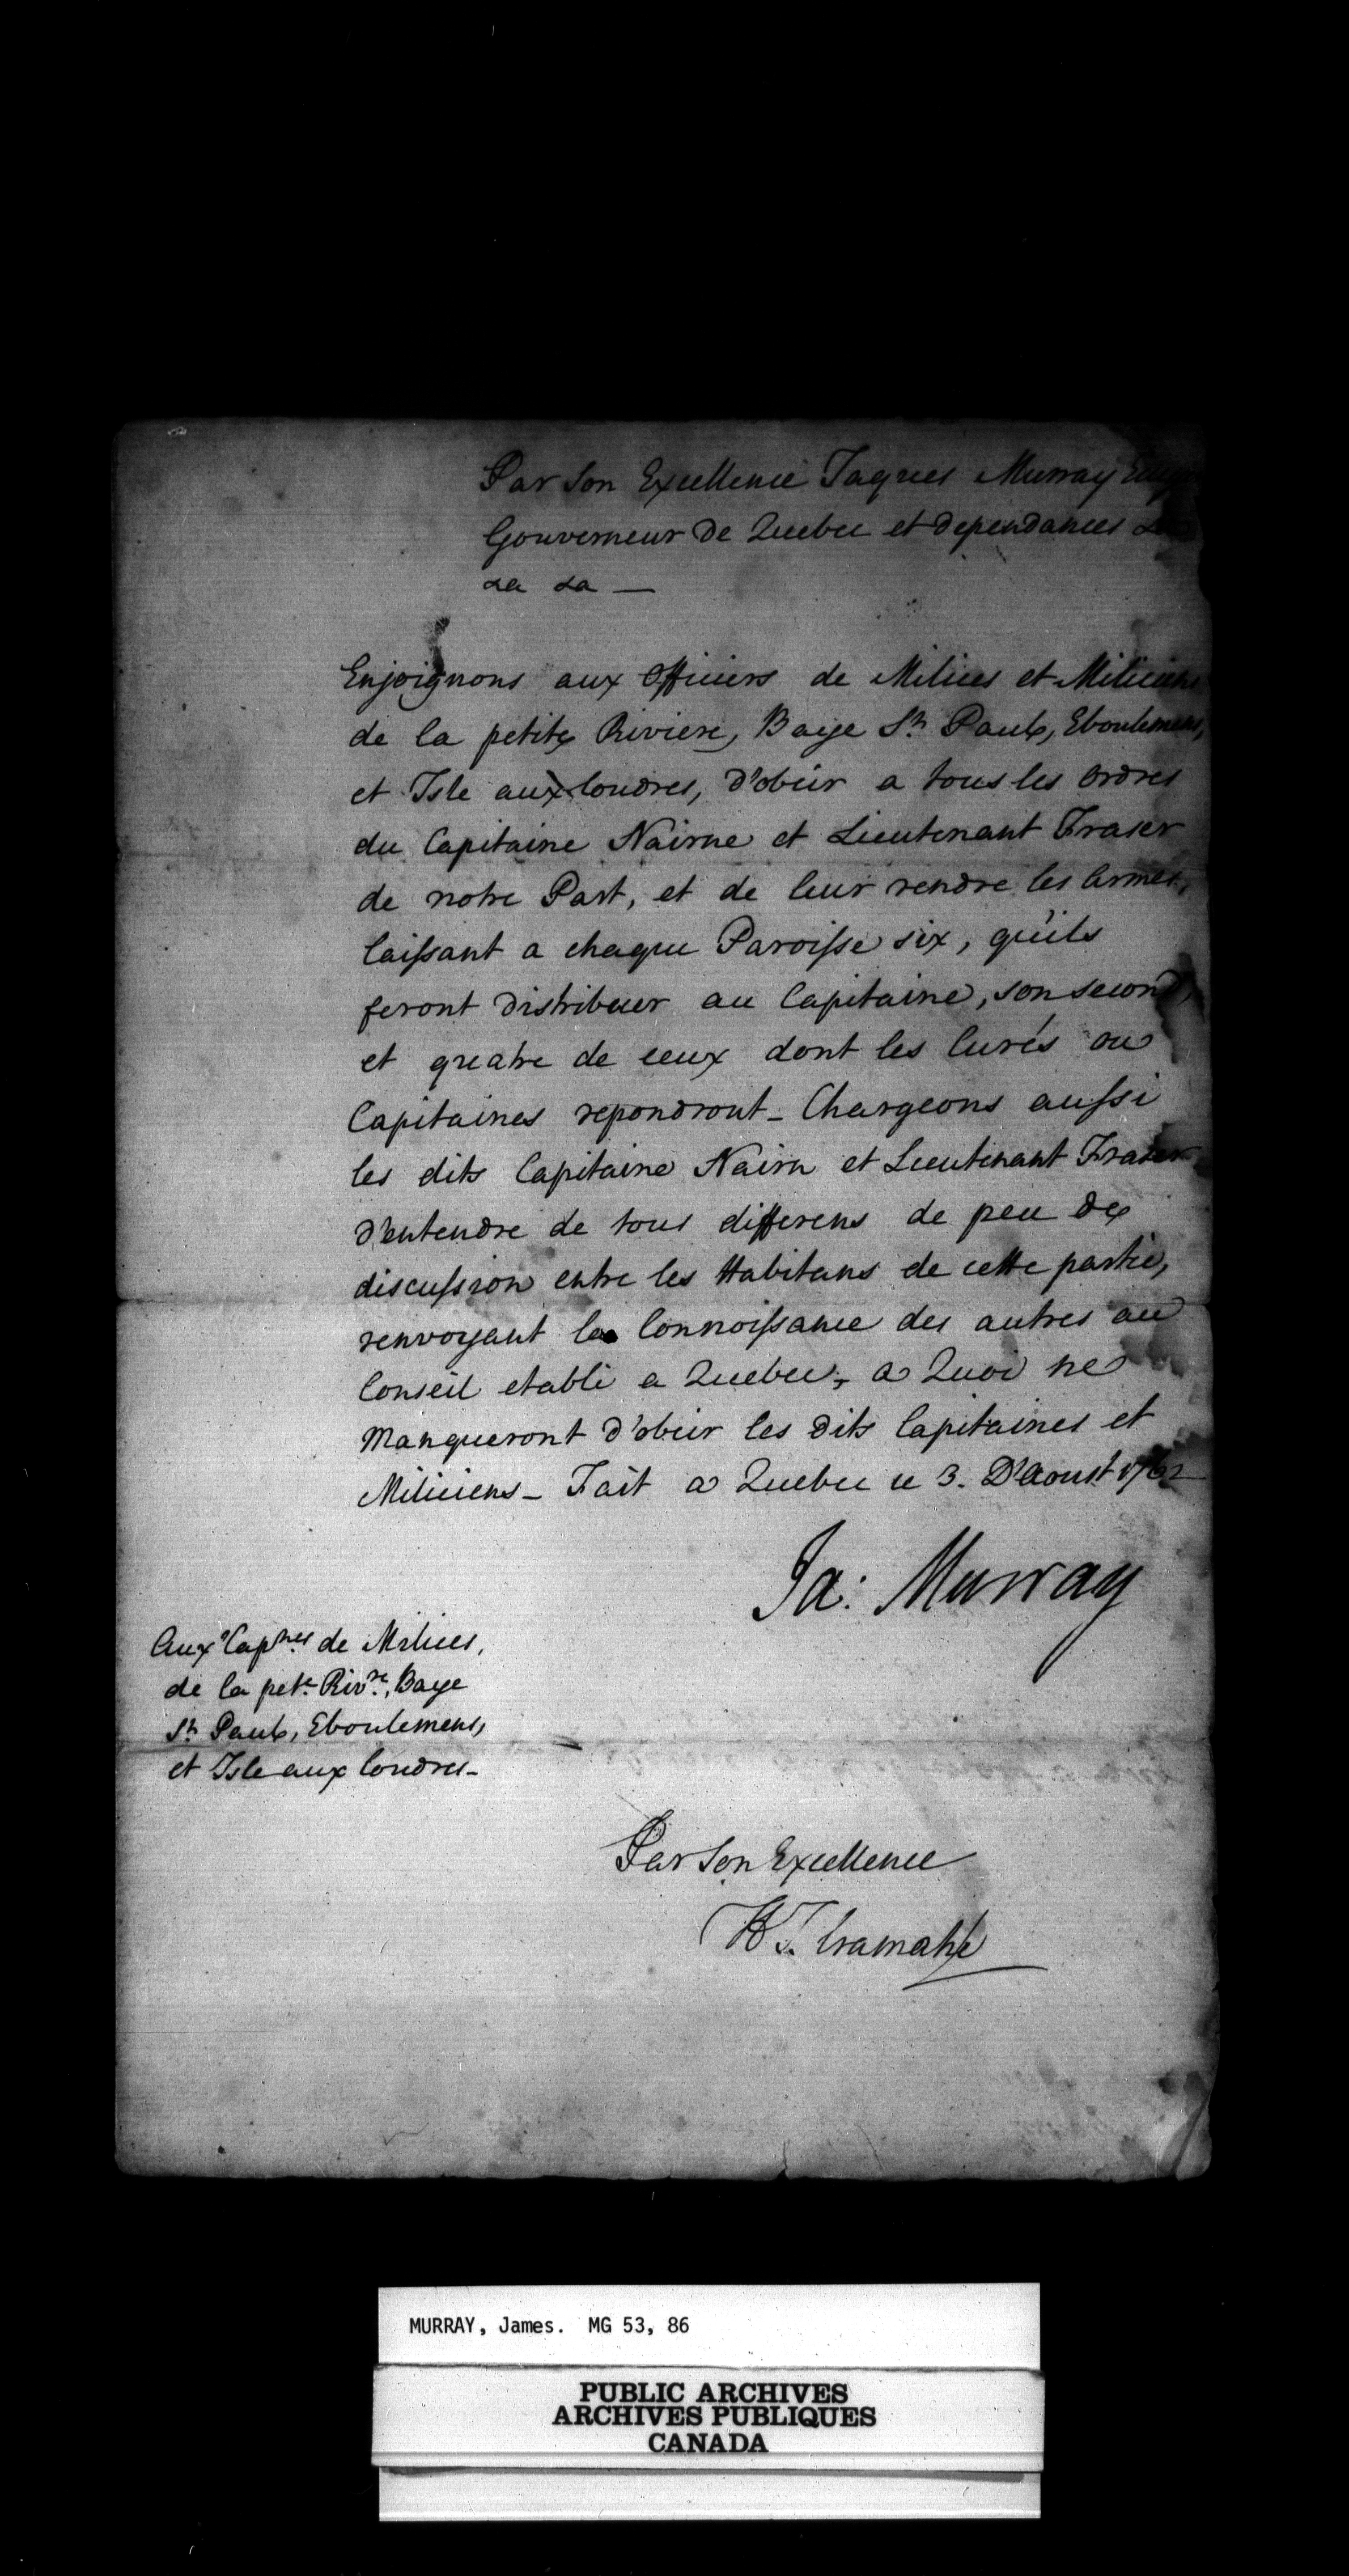 Par Son Excellence Jaques Murray
Gouverneur De Quebec et dependances &a
&a &a —
Enjoignons aux Officiers de Milices et Miliciens
de la petite Riviere, Baye St. Paul, Eboulemens,
et Isle aux Coudres, d'obéir a tous les Ordres
du Capitaine Nairne et Lieutenant Fraser
de notre Part, et de leur rendre les Armes,
laissant a chaque Paroisse six, qu'ils
feront distribuer au Capitaine, son second,
et quatre de ceux dont les Curés ou
Capitaines repondront_ Chargeons aussi
les dits Capitaine Nairn et Lieutenant Fraser
d'entendre de tous differens de peu de
discussion entre les Habitans de cette partie,
renvoyant la Connoissance des autres au
Conseil etabli a Quebec, a Quoi ne
Manqueront d'obeir les dits Capitaines et
Miliciens_ Fait a Quebec ce 3. D'Aoust 1762
Ja: Murray
Aux Capnes de Milices,
de la pete Rivre, Baye
St. Paul, Eboulemens,
et Isle aux Coudres_
Par Son Excellence
H T. Cramahé
MURRAY, James. MG 53, 86
PUBLIC ARCHIVES
ARCHIVES PUBLIQUES
CANADA